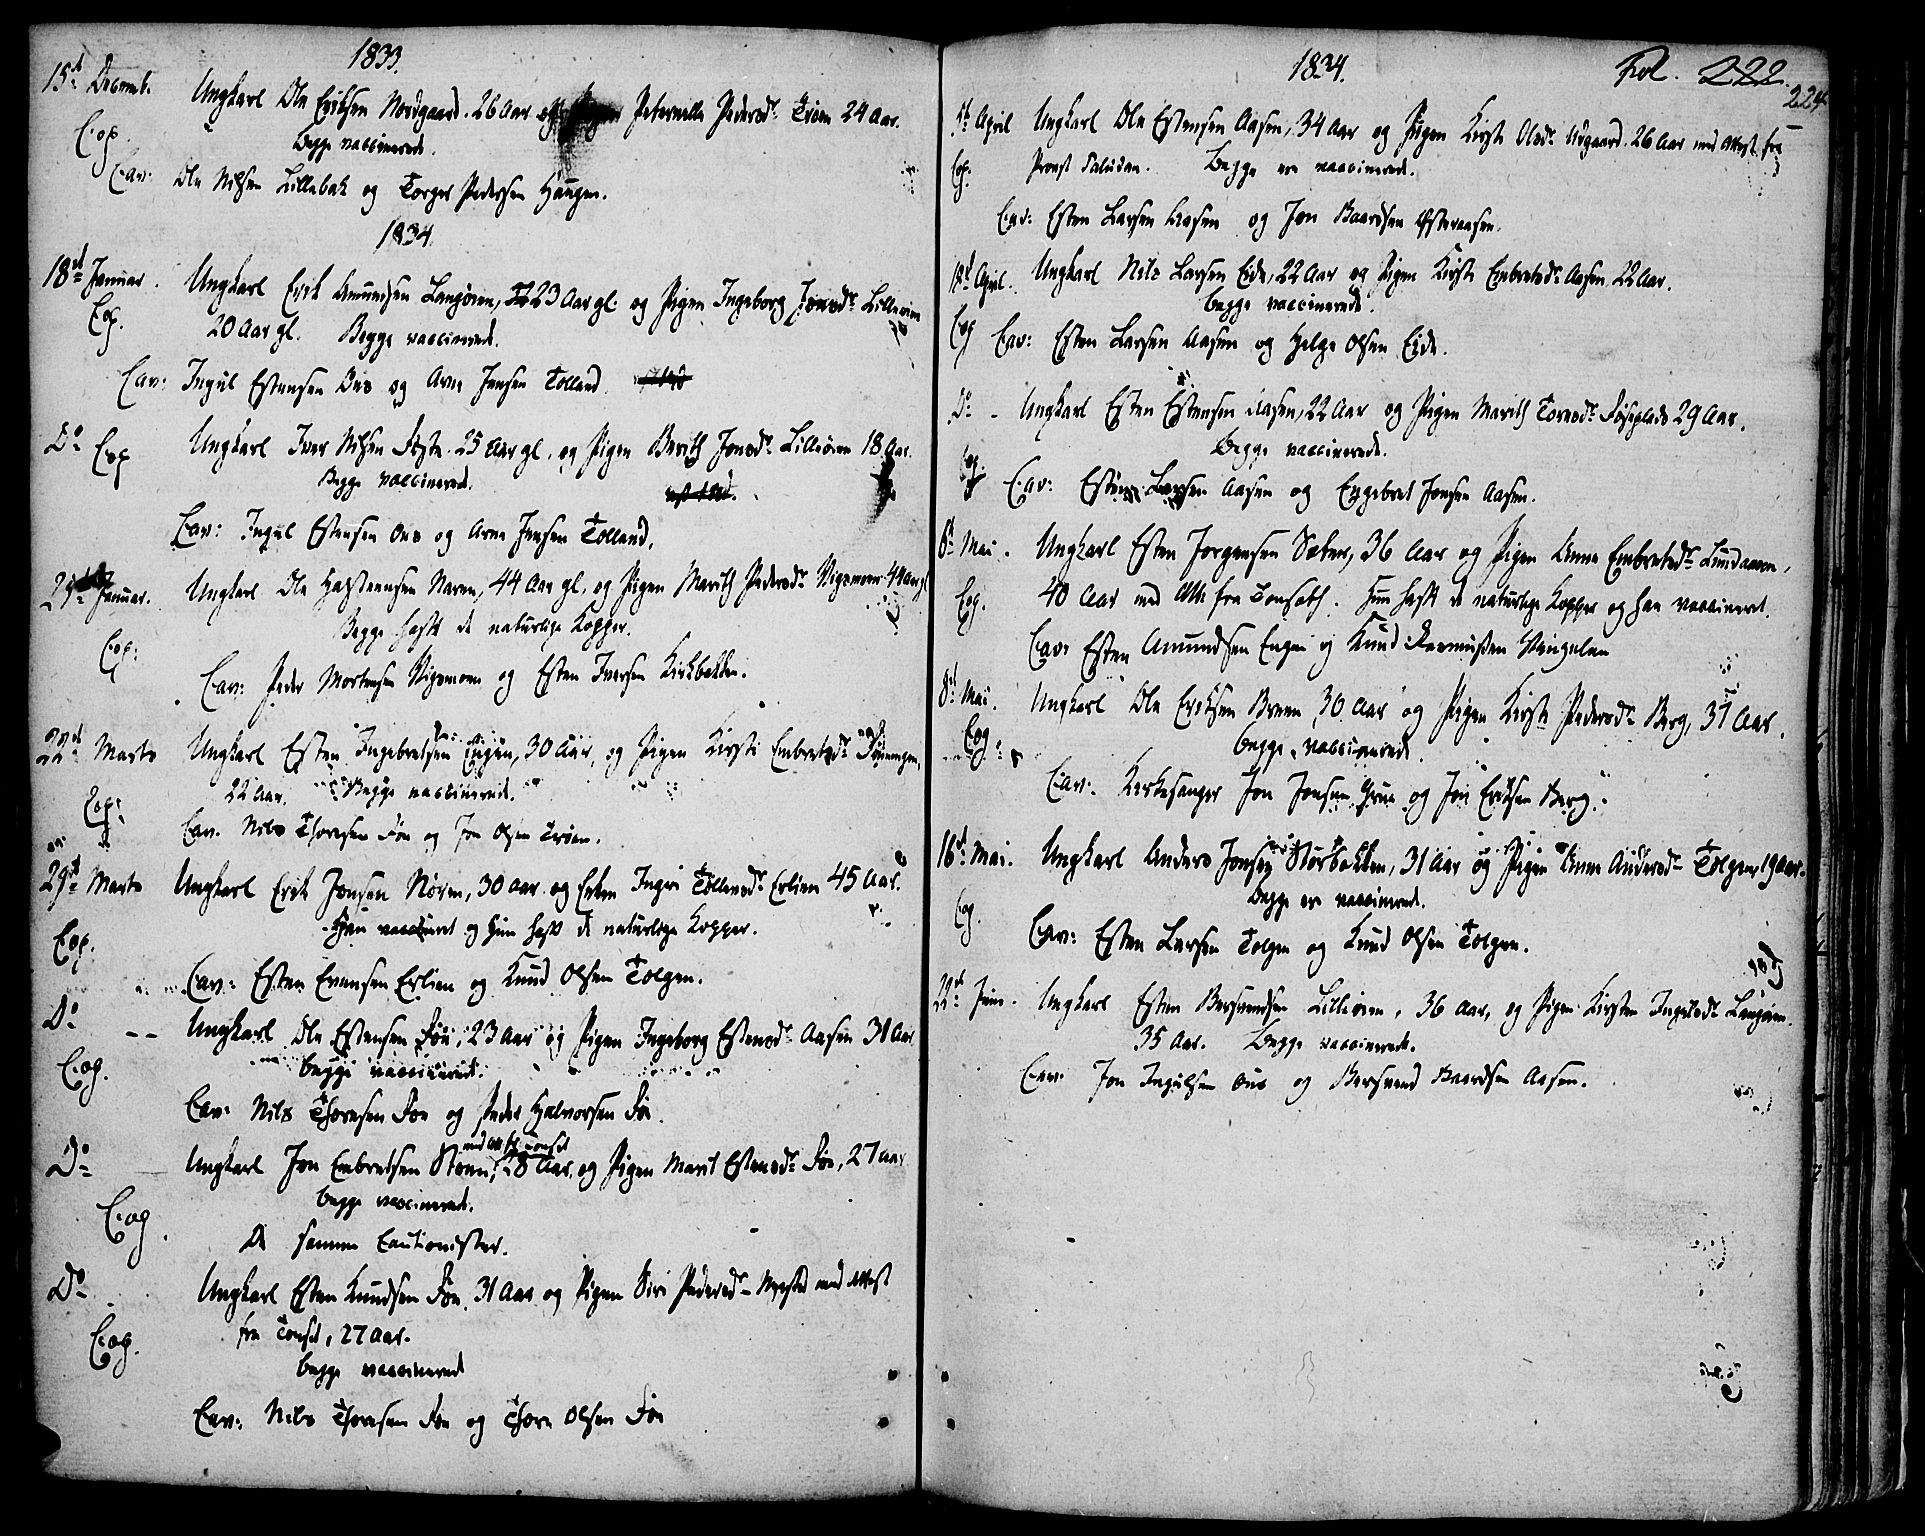 1833.
15d Decemb. Ungkarl Ole Eriksen Nordgaard. 26 Aar og Pigen Peternille Pedersdr Trøen 24 Aar.
Cop. Begge vaccinerede.
Cav: Ole Nilsen Lillebak og Torger Pedersen Haugen.
1834.
18de Januar. Ungkarl Erik Amundsen Langøren, 23 Aar gl. og Pigen Ingeborg Jonsdr Lilleøien
Cop. 20 Aar gl. Begge vaccinerede.
Cav: Ingul Estensen Ous og Arne Jensen Tolland
Do Cop Ungkarl Iver Nilsen 25 Aar gl. og Pigen Berith Jonsdr Lilleøien 18 Aar.
Begge vaccinerede.
Cav: Ingul Estensen Ous og Arne Jensen Tolland.
Januar. Ungkarl Ole Halsteensen Naren, 44 Aar gl. og Pigen Marith Pedersdr Vigsmoen 44 Aar gl
Begge havt de naturlige Kopper.
Cop: Cav: Peder Mortensen Vigsmoen og Esten Iversen Kirkbakken.
22d Marts Ungkarl Esten Ingebretsen Engen, 30 Aar, og Pigen Kirsti Embretsdr
22 Aar. Begge vaccinerede.
Cop: Cav. Nils Thoresen Føe og Jon Olsen Trøen.
29d Marts Ungkarl Erik Jonsen Nören, 30 Aar og Enken Ingri Tollevsdr Erlien 45 Aar.
Han vaccineret og hun havt de naturlige Kopper.
Cop. Cav: Esten Evensen Erlien og Knud Olsen Tolgen.
Do -- Ungkarl Ole Estensen Føe, 23 Aar og Pigen Ingeborg Estensdr Aasen 31 Aar
Cop. begge vaccinerede.
Cav: Nils Thoresen Føe og Peder Halvorsen Føe.
med Att fr Tonset
Do Ungkarl Jon Embretsen Stoen, 28 Aar, og Pigen Marit Estensdr Føe, 27 aar
begge vaccinerede.
Cop. De samme Cautionister.
Do Ungkarl Esten Knudsen Føe, 31 Aar og Pigen Siri Pedersdr Nysted med Attest
fra Tonset, 27 Aar.
Cop. begge vaccinerede
Cav: Nils Thoresen Føe og Thore Olsen Føe
1834.
Fol. 222.
224
April Ungkarl Ole Estensen Aasen, 34 Aar og Pigen Kirsti Olsdr 26 Aar med Attest fra
Cop. Provst Paludan. Begge ere vaccinerede.
Cav: Esten Larsen Aasen og Jon Baardsen Østeraasen.
18d April. Ungkarl Nils Larsen Eide, 22 Aar og Pigen Kirsti Embretsdr Aasen, 22 Aar.
begge vaccinerede.
Cop Cav: Esten Larsen Aasen og Helge Olsen Eide.
Do - Ungkarl Esten Estensen Aasen, 22 Aar og Pigen Marith Tørresdr 29 Aar.
Begge vaccinerede.
Cop. Cav: Esten Larsen Aasen og Engebret Jonsen Aasen.
8d Mai. Ungkarl Esten Jorgensen Sæter, 36 Aar og Pigen Anne Embretsdr
Cop. 40 Aar med Att: fra Tonsæth. Hun havt de naturlige Kopper og han vaccineret.
Cav: Esten Amundsen Engen og Knud Rasmussen Vingelen
8d Mai. Ungkarl Ole Eriksen Breen, 30 Aar og Pigen Kirsti Pedersdr Berg, 37 Aar.
Cop: begge vaccinerede.
Cav: Kirkesanger Jon Jonsen og Jon Eriksen Berg.
16d Mai. Ungkarl Anders Jonsen Storbakken, 31 Aar og Pigen Anne Andersdr Tolgen 19 Aar.
Begge er vaccinerede.
Cop. Cav: Esten Larsen Tolgen og Knud Olsen Tolgen.
22d Juni. Ungkarl Esten Bersvendsen Lilleøien, 36 Aar, og Pigen Kirsten Ingulsdr Langøien.
35 Aar. Begge vaccinerede.
Cav: Jon Ingulsen Ous og Bersvend Baardsen Aasen.